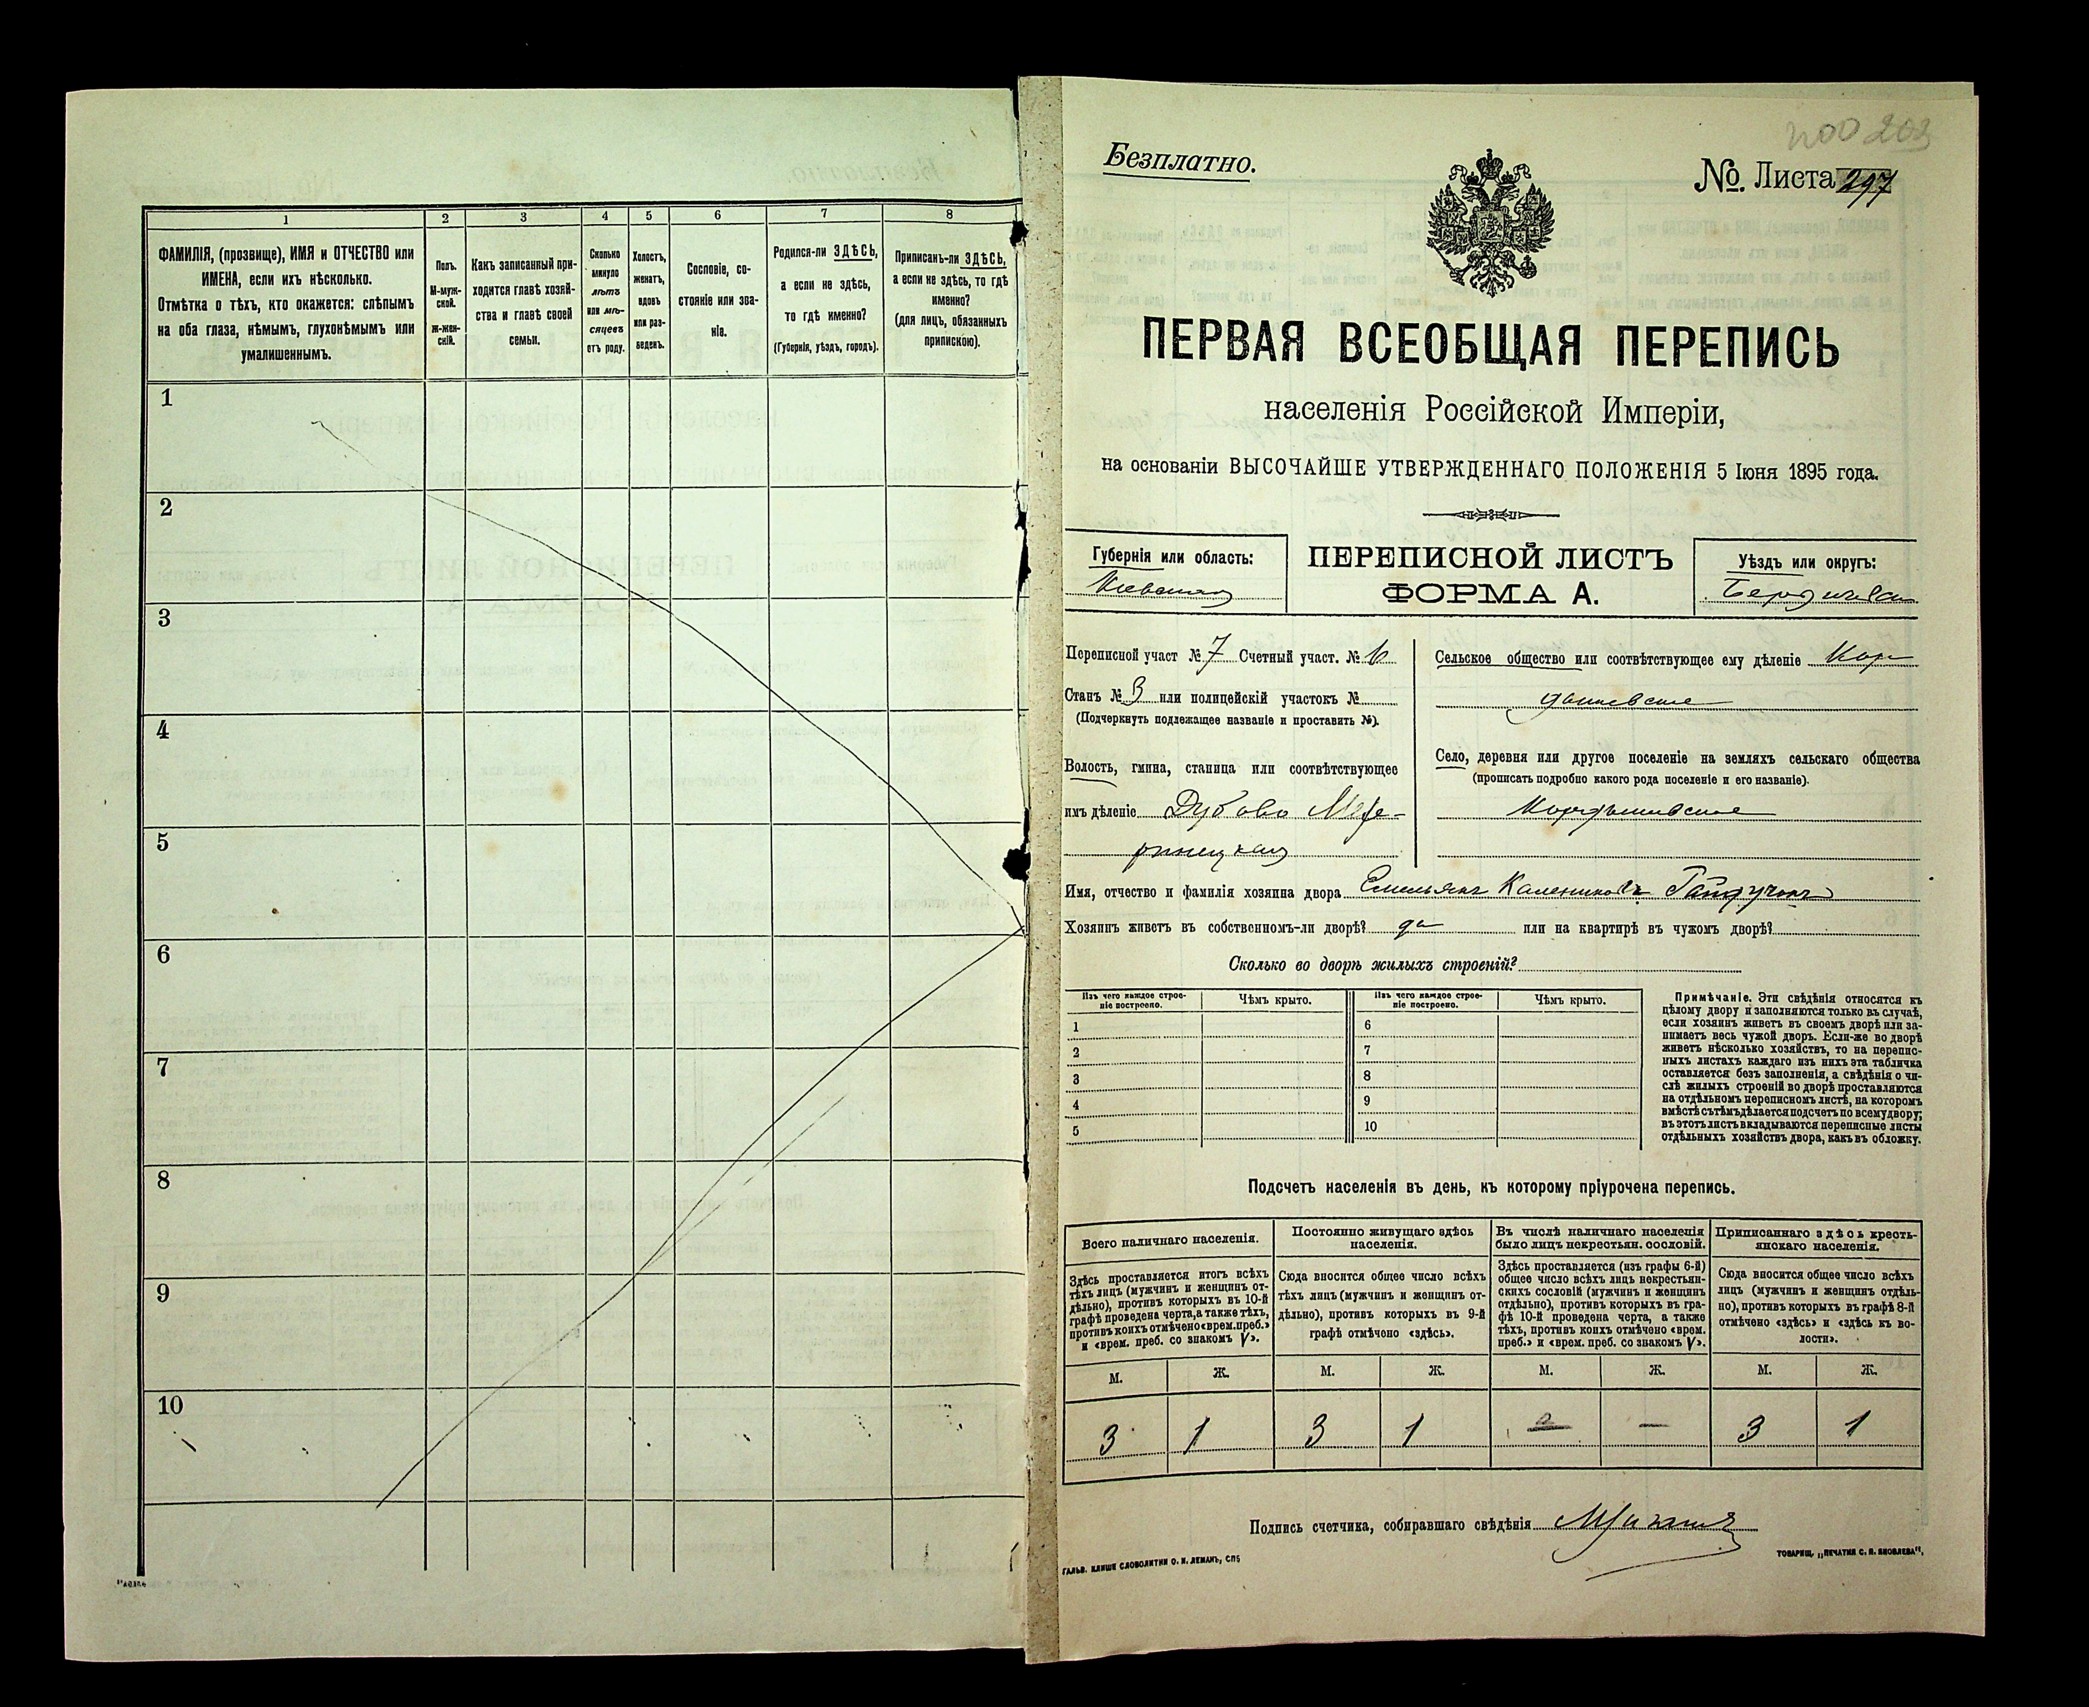 1
2
3
4
5
6
7
8
ФАМИЛІЯ, (прозвище), ИМЯ и ОТЧЕСТВО или
ИМЕНА, если ихъ нѣсколько.
Отмѣтка о тѣхъ, кто окажется: слѣпымъ
на оба глаза, нѣмымъ, глухонѣмымъ или
умалишеннымъ.
Полъ.
М-муж-
ской.
ж-жен-
скій.
Какъ записанный при-
ходится главѣ хозяй-
ства и главѣ своей
семьи.
Сколько
минуло
лѣтъ
или мѣ-
сяцевъ
отъ роду.
Холостъ,
женатъ,
вдовъ
или раз-
веденъ.
Сословіе, со-
стояніе или зва-
ніе.
Родился-ли ЗДѢСЬ,
а если не здѣсь,
то гдѣ именно?
(Губернія, уѣздъ, городъ).
Приписанъ-ли ЗДѢСЬ,
а если не здѣсь, то гдѣ
именно?
(для лицъ, обязанныхъ
припискою).
1
2
3
4
5
6
7
8
9
10
203
Безплатно.
№. Листа 297
ПЕРВАЯ ВСЕОБЩАЯ ПЕРЕПИСЬ
населенія Россійской Имперіи,
на основаніи ВЫСОЧАЙШЕ УТВЕРЖДЕННАГО ПОЛОЖЕНІЯ 5 Іюня 1895 года.
Губернія или область:
Кіевская
ПЕРЕПИСНОЙ ЛИСТЪ
ФОРМА А.
Уѣздъ или округъ:
Бердичевск
Переписной участ № 7 Счетный участ. № 6
Станъ № 3 или полицейскій участокъ №
(Подчеркнуть подлежащее названіе и проставить №).
Волость, гмина, станица или соотвѣтствующее
имъ дѣленіе Дубово Меже-
ринецкая
Сельское общество или соотвѣтствующее ему дѣленіе Кор
дышевское
Село, деревня или другое поселеніе на земляхъ сельскаго общества
(прописать подробно какого рода поселеніе и его названіе).
Кордышевское
Имя, отчество и фамилія хозяина двора Емельянъ Калениковъ
Хозяинъ живетъ въ собственномъ-ли дворѣ? да или на квартирѣ въ чужомъ дворѣ?
Сколько во дворѣ жилыхъ строеній?
Изъ чего каждое строе-
ніе построено.
Чѣмъ крыто.
Изъ чего каждое строе-
ніе построено.
Чѣмъ крыто.
1
2
3
4
5
6
7
8
9
10
Примѣчаніе. Эти свѣдѣнія относятся къ
цѣлому двору и заполняются только въ случаѣ,
если хозяинъ живетъ въ своемъ дворѣ или за-
нимаетъ весь чужой дворъ. Если-же во дворѣ
живетъ нѣсколько хозяйствъ, то на перепис-
ныхъ листахъ каждаго изъ нихъ эта табличка
оставляется безъ заполненія, а свѣдѣнія о чи-
слѣ жилыхъ строеній во дворѣ проставляются
на отдѣльномъ переписномъ листѣ, на которомъ
вмѣстѣ съ тѣмъ дѣлается подсчетъ по всему двору;
въ этотъ листъ вкладываются переписные листы
отдѣльныхъ хозяйствъ двора, какъ въ обложку.
Подсчетъ населенія въ день, къ которому пріурочена перепись.
Всего наличнаго населенія.
Постоянно живущаго здѣсь
населенія.
Въ числѣ наличнаго населенія
было лицъ некрестьян. сословій.
Приписаннаго здѣсь кресть-
янскаго населенія.
Здѣсь проставляется итогъ всѣхъ
тѣхъ лицъ (мужчинъ и женщинъ от-
дѣльно), противъ которыхъ въ 10-й
графѣ проведена черта, а также тѣхъ,
противъ коихъ отмѣчено «врем. преб.»
и «врем. преб. со знакомъ V».
Сюда вносится общее число всѣхъ
тѣхъ лицъ (мужчинъ и женщинъ от-
дѣльно), противъ которыхъ въ 9-й
графѣ отмѣчено «здѣсь».
Здѣсь проставляется (изъ графы 6-й)
общее число всѣхъ лицъ некрестьян-
скихъ сословій (мужчинъ и женщинъ
отдѣльно), противъ которыхъ въ гра-
фѣ 10-й проведена черта, а также
тѣхъ, противъ коихъ отмѣчено «врем.
преб.» и «врем. преб. со знакомъ V».
Сюда вносится общее число всѣхъ
лицъ (мужчинъ и женщинъ отдѣль-
но), противъ которыхъ въ графѣ 8-й
отмѣчено «здѣсь» и «здѣсь къ во-
лости».
М. Ж. М. Ж. М. Ж. М. Ж.
3 1 3 1 — 3 1
Подпись счетчика, собиравшаго свѣдѣнія
ГАЛЬВ. КЛИШЕ СЛОВОЛИТНИ О. И. ЛЕМАНЪ, СПБ
ТОВАРИЩ. „ПЕЧАТНЯ С. П. ЯКОВЛЕВА“,